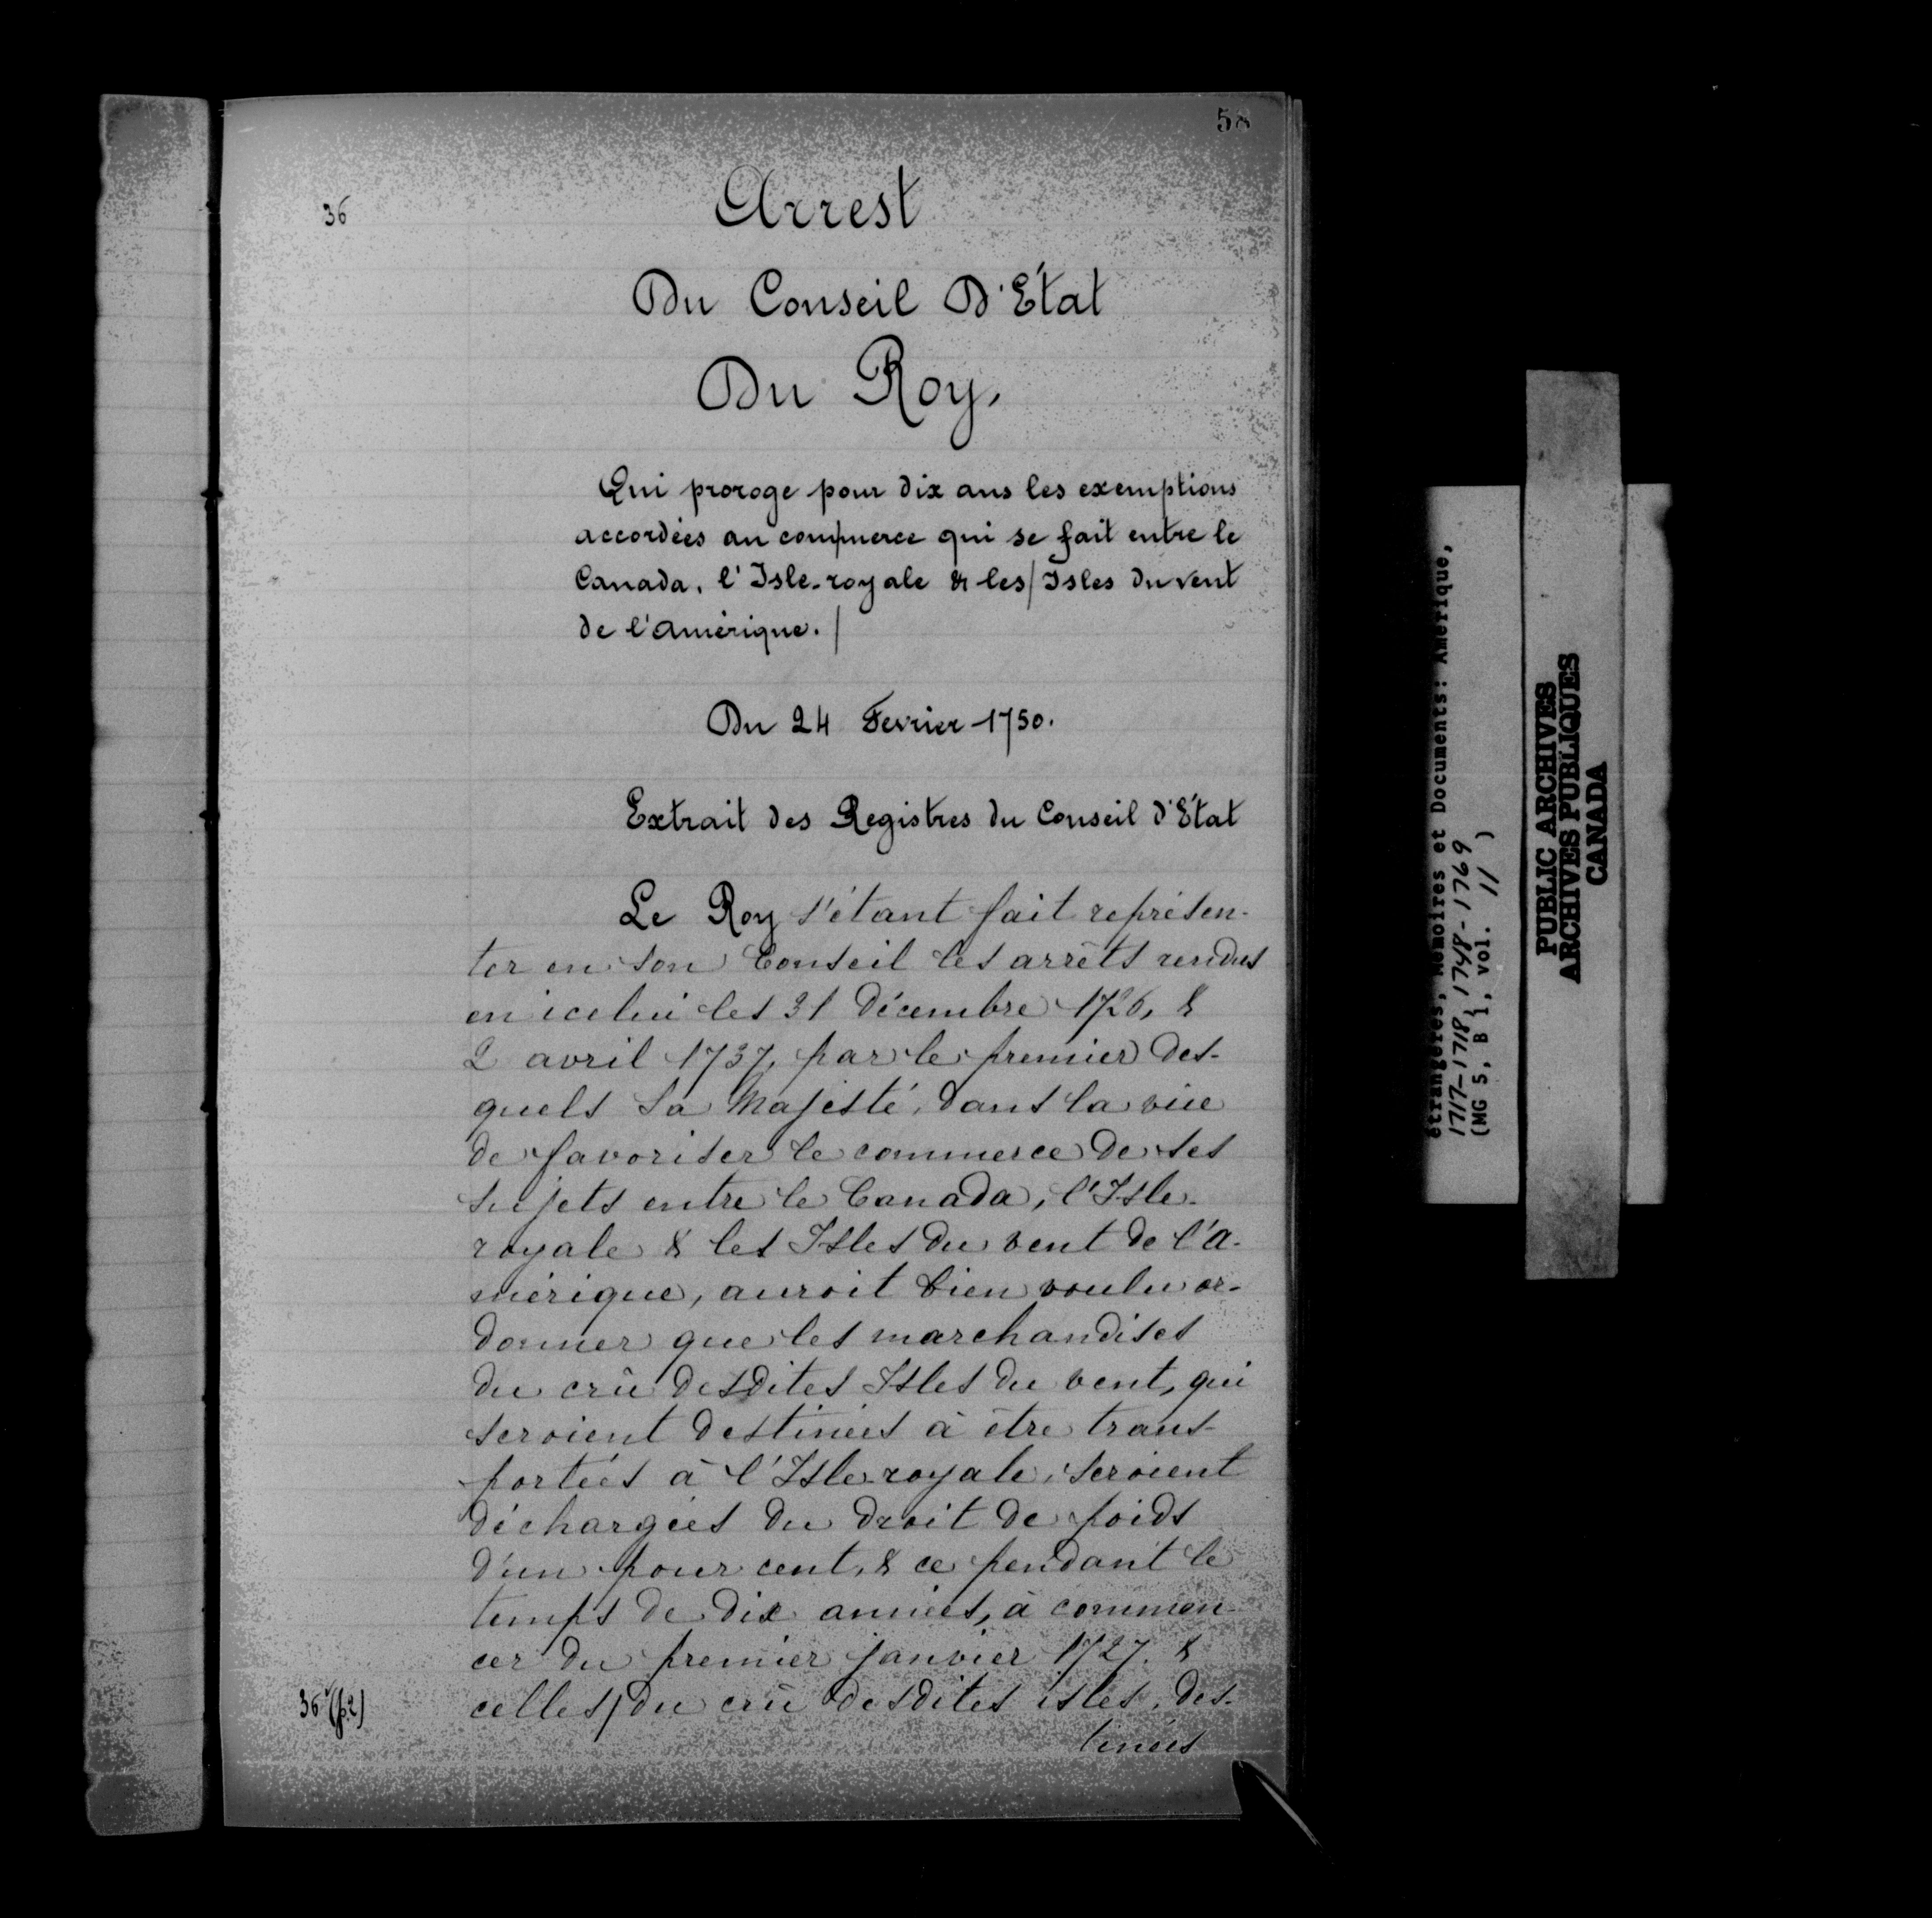 58
36
Arrest
Du Conseil D'État
Du Roy,
Qui proroge pour dix ans les exemptions
accordées au commerce qui se fait entre le
Canada, l'Isle-royale & les/Isles du vent
de l'amérique./
Du 24 Fevrier 1750.
Extrait des Registres du Conseil d'État
Le Roy s'étant fait représen-
ter en son Conseil les arrêts rendus
en icelui les 31 Décembre 1726, &
2 avril 1737, par le premier des-
quels Sa Majesté, dans la vüe
de favoriser le commerce de ses
sujets entre le Canada, l'Isle-
royale & les Isles du vent de l'a-
mérique, auroit bien voulu or-
donner que les marchandises
du crû desdites Isles du vent, qui
seroient destinées à être trans-
portées à l'Isle-royale, seroient
déchargées du droit de poids
d'un pour cent, & ce pendant le
temps de dix années, à commen-
cer du premier janvier 1727. &
36v (p.2)
celles/du crû desdites isles, des-
tinées
étrangères, Mémoires et Documents: Amérique,
1717-1718, 1748-1769
(MG 5, B 1, vol. 11 )
PUBLIC ARCHIVES
ARCHIVES PUBLIQUES
CANADA